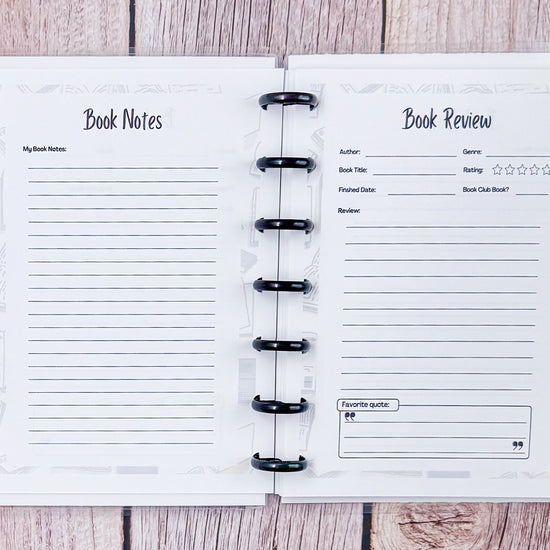 Book Notes
My Book Notes:
Book Review
Author: Genre:
Book Title: Rating:
Finshed Date: Book Club Book?
Review:
Favorite quote: